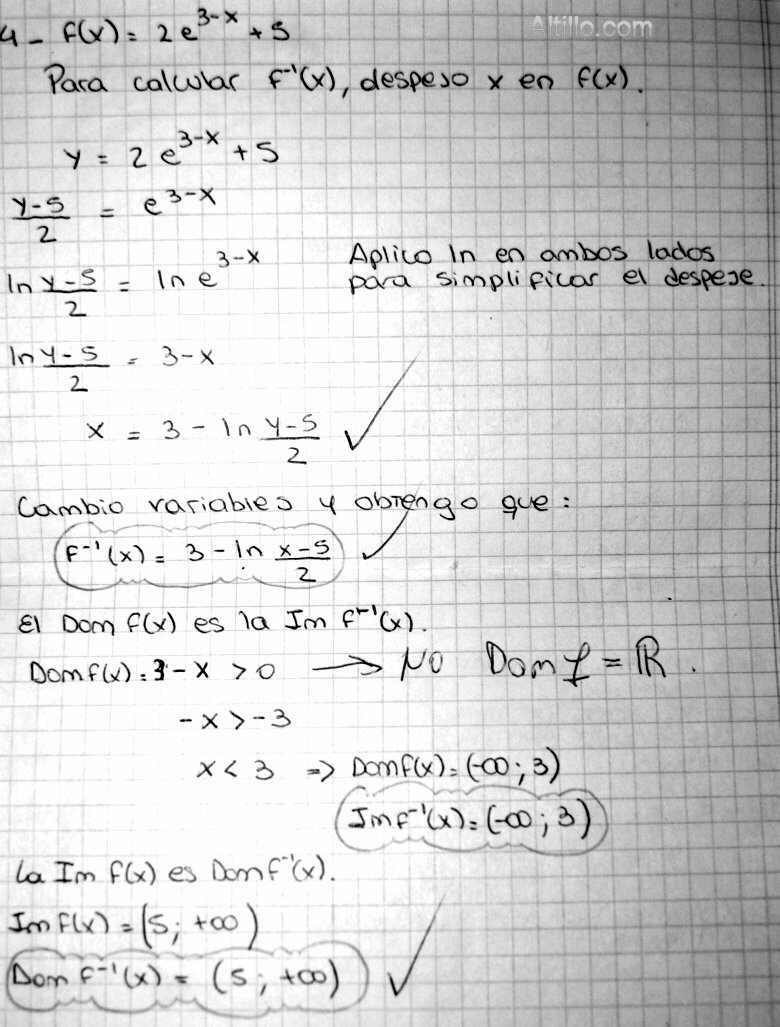 Altillo.com
4- f(x) = 2e^(3-x) + 5
Para calcular f⁻¹(x), despejo x en f(x).
y = 2e^(3-x) + 5
(y-5)/2 = e^(3-x)
ln (y-5)/2 = ln e^(3-x)
Aplico ln en ambos lados
para simplificar el despeje.
ln (y-5)/2 = 3-x
x = 3 - ln (y-5)/2 ✓
Cambio variables y obtengo que:
f⁻¹(x) = 3 - ln (x-5)/2 ✓
El Dom f(x) es la Im f⁻¹(x).
Dom f(x): 3-x > 0 → NO Dom f = ℝ.
-x > -3
x < 3 => Dom f(x) = (-∞; 3)
Im f⁻¹(x) = (-∞; 3)
La Im f(x) es Dom f⁻¹(x).
Im f(x) = (5; +∞)
Dom f⁻¹(x) = (5; +∞) ✓